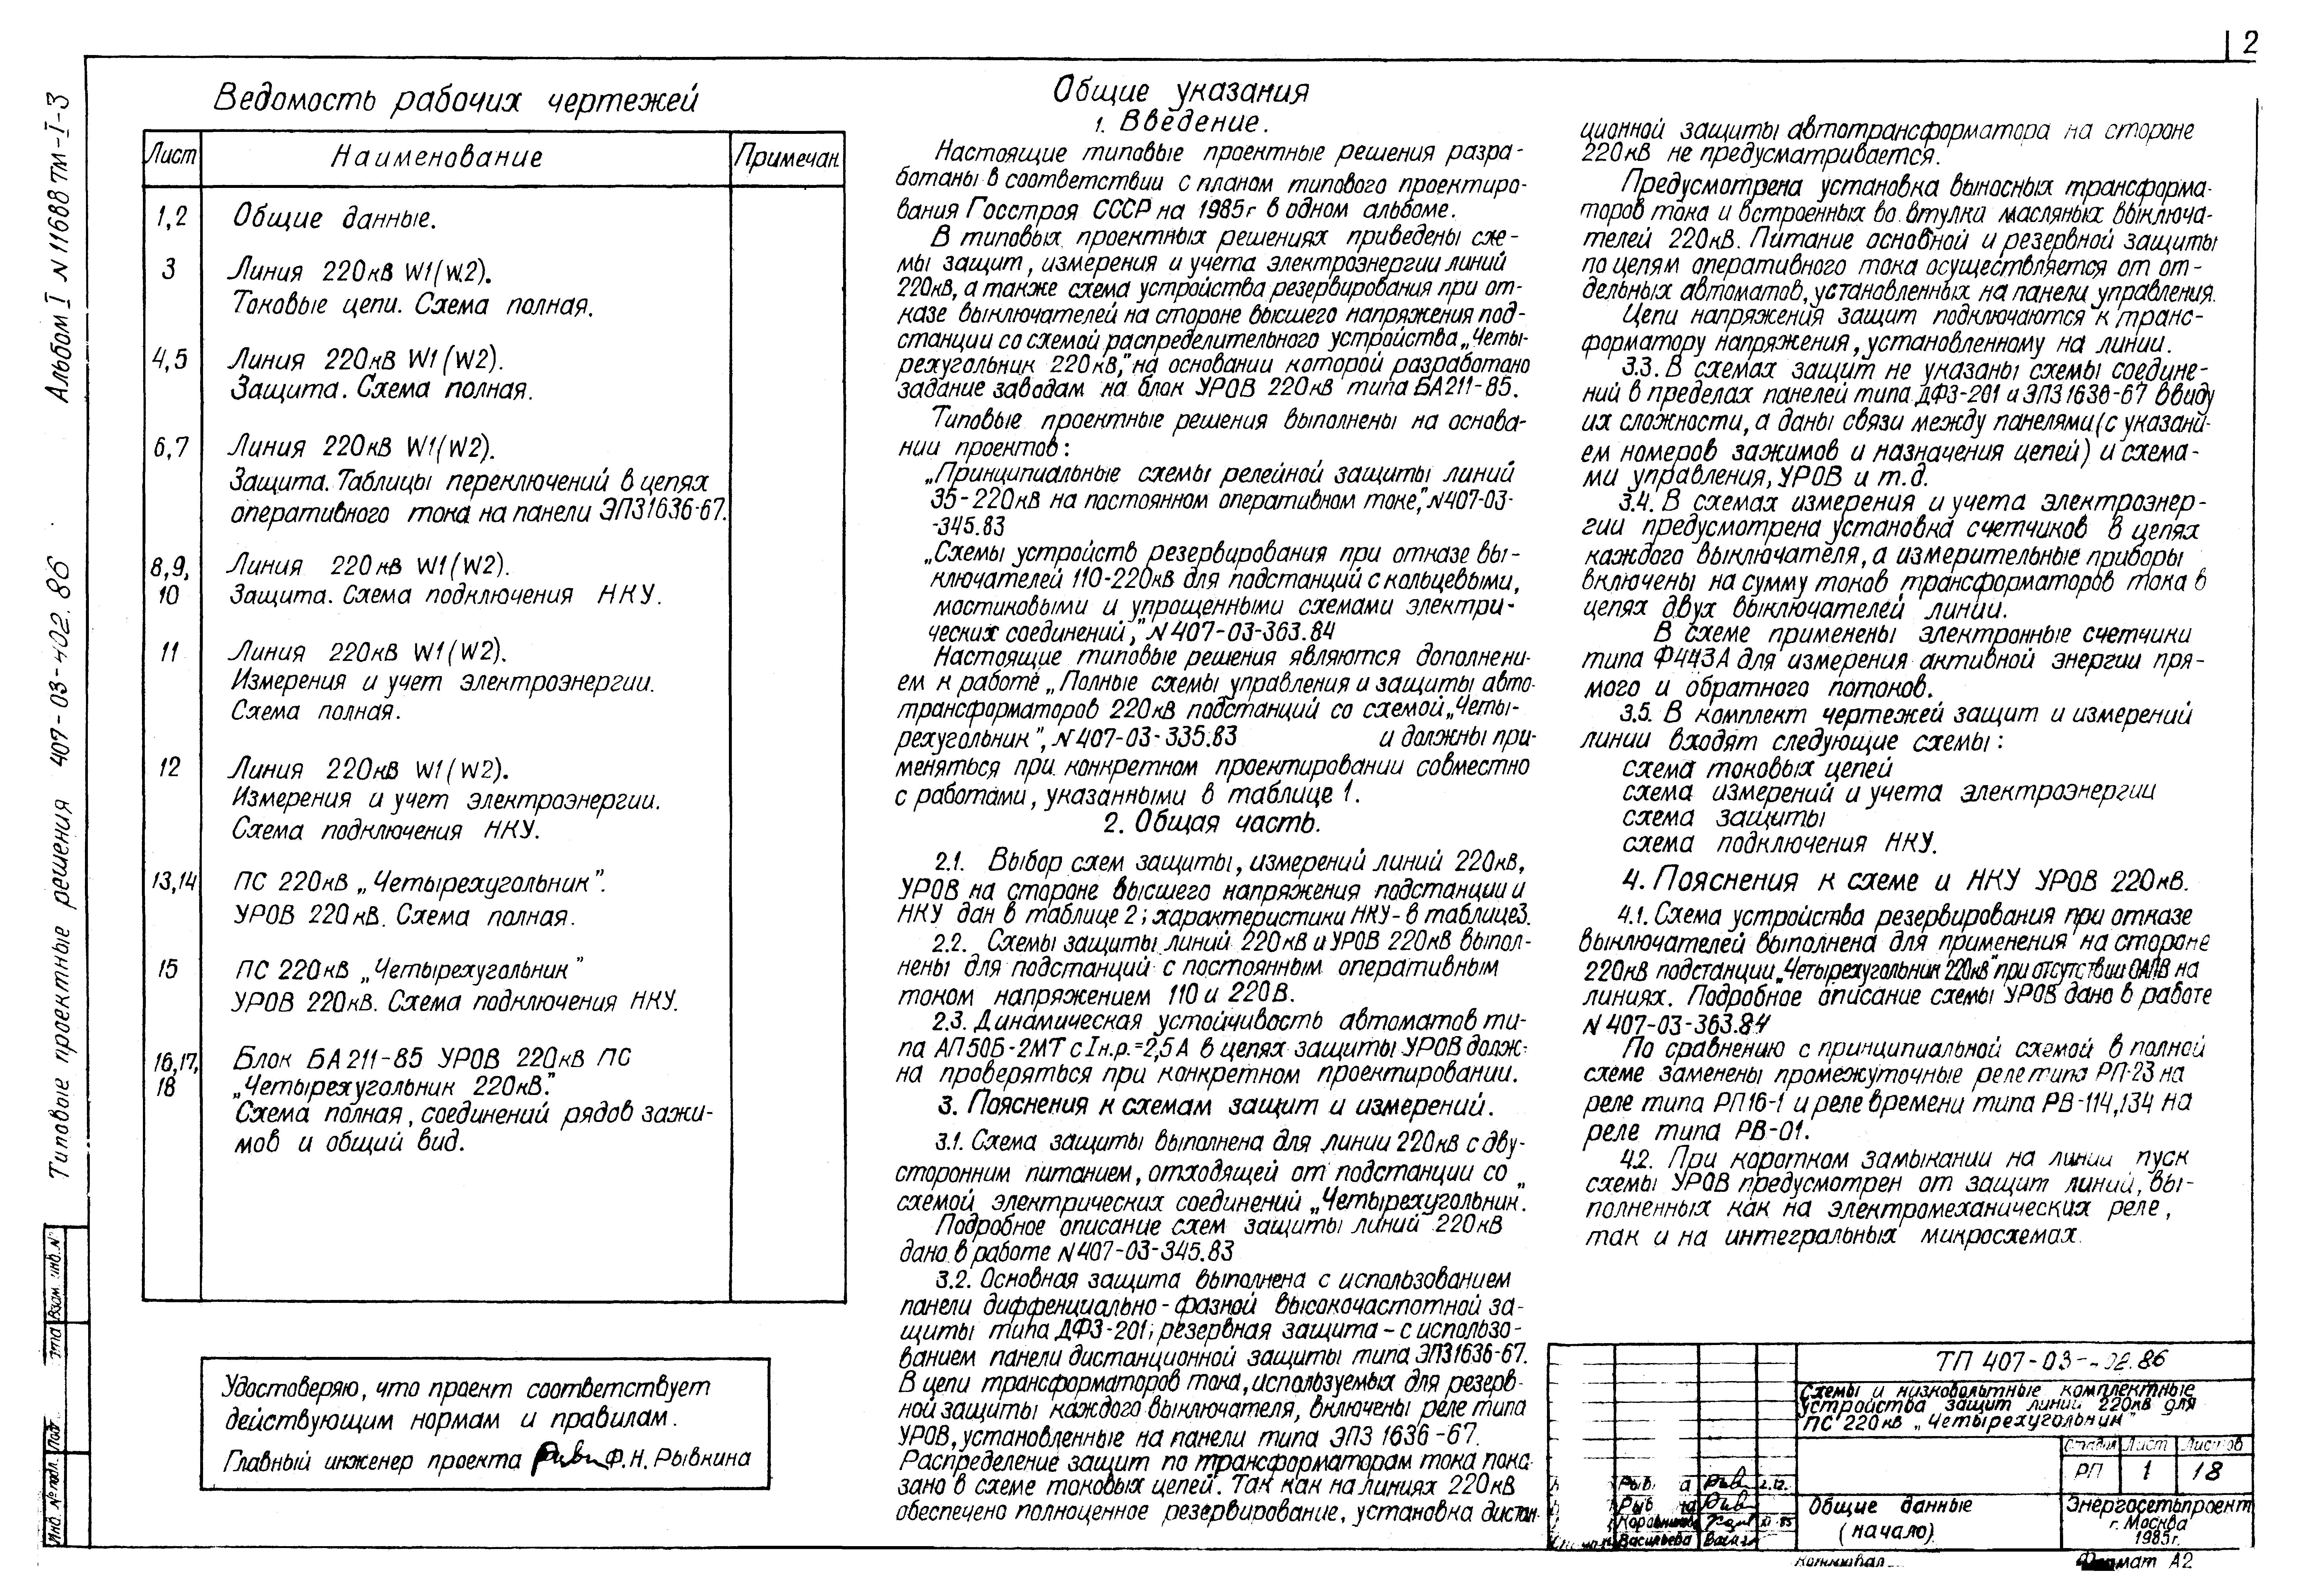 2
Альбом I N 11688 тм-I-3
Типовые проектные решения 407-03-402.86
Ведомость рабочих чертежей
Лист
Наименование
Примечан.
1,2
Общие данные.
3
Линия 220кв W1(W2).
Токовые цепи. Схема полная.
4,5
Линия 220кВ W1(W2).
Защита. Схема полная.
6,7
Линия 220кВ W1(W2).
Защита. Таблицы переключений в цепях
оперативного тока на панели ЭПЗ1636-67.
8,9,
10
Линия 220кв W1(W2).
Защита. Схема подключения НКУ.
11
Линия 220кВ W1(W2).
Измерения и учет электроэнергии.
Схема полная.
12
Линия 220кВ W1(W2).
Измерения и учет электроэнергии.
Схема подключения НКУ.
13,14
ПС 220кВ „Четырехугольник".
УРОВ 220кВ. Схема полная.
15
ПС 220кВ „Четырехугольник"
УРОВ 220кВ. Схема подключения НКУ.
16,17,
18
Блок БА211-85 УРОВ 220кВ ПС
„Четырехугольник 220кВ".
Схема полная, соединений рядов зажи-
мов и общий вид.
Удостоверяю, что проект соответствует
действующим нормам и правилам.
Главный инженер проекта Ф.Н. Рывкина
Общие указания
1. Введение.
Настоящие типовые проектные решения разра-
ботаны в соответствии с планом типового проектиро-
вания Госстроя СССР на 1985г в одном альбоме.
В типовых проектных решениях приведены схе-
мы защит, измерения и учета электроэнергии линий
220кВ, а также схема устройства резервирования при от-
казе выключателей на стороне высшего напряжения под-
станции со схемой распределительного устройства „Четы-
рехугольник 220кВ", на основании которой разработано
задание заводам на блок УРОВ 220кВ типа БА211-85.
Типовые проектные решения выполнены на основа-
нии проектов:
„Принципиальные схемы релейной защиты линий
35-220кВ на постоянном оперативном токе", N407-03-
-345.83
„Схемы устройств резервирования при отказе вы-
ключателей 110-220кВ для подстанций с кольцевыми,
мостиковыми и упрощенными схемами электри-
ческих соединений", N407-03-363.84
Настоящие типовые решения являются дополнени-
ем к работе „Полные схемы управления и защиты авто-
трансформаторов 220кВ подстанций со схемой „Четы-
рехугольник", N407-03-335.83 и должны при-
меняться при конкретном проектировании совместно
с работами, указанными в таблице 1.
2. Общая часть.
2.1. Выбор схем защиты, измерений линий 220кв,
УРОВ на стороне высшего напряжения подстанции и
НКУ дан в таблице 2; характеристики НКУ-в таблице3.
2.2. Схемы защиты линий 220кВ и УРОВ 220кВ выпол-
нены для подстанций с постоянным оперативным
током напряжением 110 и 220В.
2.3. Динамическая устойчивость автоматов ти-
па АП50Б-2МТ с Iн.р.=2,5А в цепях защиты УРОВ долж-
на проверяться при конкретном проектировании.
3. Пояснения к схемам защит и измерений.
3.1. Схема защиты выполнена для линии 220кв с дву-
сторонним питанием, отходящей от подстанции со
схемой электрических соединений „Четырехугольник".
Подробное описание схем защиты линий 220кВ
дано в работе N407-03-345.83
3.2. Основная защита выполнена с использованием
панели диффенциально-фазной высокочастотной за-
щиты типа ДФЗ-201; резервная защита - с использо-
ванием панели дистанционной защиты типа ЭПЗ1636-67.
В цепи трансформаторов тока, используемых для резерв-
ной защиты каждого выключателя, включены реле типа
УРОВ, установленные на панели типа ЭПЗ 1636-67.
Распределение защит по трансформаторам тока пока-
зано в схеме токовых цепей. Так как на линиях 220кВ
обеспечено полноценное резервирование, установка дистан-
ционной защиты автотрансформатора на стороне
220кВ не предусматривается.
Предусмотрена установка выносных трансформа-
торов тока и встроенных во втулки масляных выключа-
телей 220кВ. Питание основной и резервной защиты
по цепям оперативного тока осуществляется от от-
дельных автоматов, установленных на панели управления.
Цепи напряжения защит подключаются к транс-
форматору напряжения, установленному на линии.
3.3. В схемах защит не указаны схемы соедине-
ний в пределах панелей типа ДФЗ-201 и ЭПЗ1636-67 ввиду
их сложности, а даны связи между панелями (с указани-
ем номеров зажимов и назначения цепей) и схема-
ми управления, УРОВ и т.д.
3.4. В схемах измерения и учета электроэнер-
гии предусмотрена установка счетчиков в цепях
каждого выключателя, а измерительные приборы
включены на сумму токов трансформаторов тока в
цепях двух выключателей линии.
В схеме применены электронные счетчики
типа Ф443А для измерения активной энергии пря-
мого и обратного потоков.
3.5. В комплект чертежей защит и измерений
линии входят следующие схемы:
схема токовых цепей
схема измерений и учета электроэнергии
схема защиты
схема подключения НКУ.
4. Пояснения к схеме и НКУ УРОВ 220кВ.
4.1. Схема устройства резервирования при отказе
выключателей выполнена для применения на стороне
220кВ подстанции „Четырехугольник 220кВ" при отсутствии ОАПВ на
линиях. Подробное описание схемы УРОВ дано в работе
N407-03-363.84
По сравнению с принципиальной схемой в полной
схеме заменены промежуточные реле типа РП-23 на
реле типа РП16-1 и реле времени типа РВ-114,134 на
реле типа РВ-01.
4.2. При коротком замыкании на линии пуск
схемы УРОВ предусмотрен от защит линий, вы-
полненных как на электромеханических реле,
так и на интегральных микросхемах.
ТП 407-03- 02.86
Схемы и низковольтные комплектные
устройства защит линий 220кВ для
ПС 220кВ „Четырехугольник"
Стадия Лист Листов
РП 1 18
Общие данные
(начало).
Энергосетьпроект
г. Москва
1985г.
Васильева
Копировал
Формат А2
Взам. инв. N
Инв. № подл.